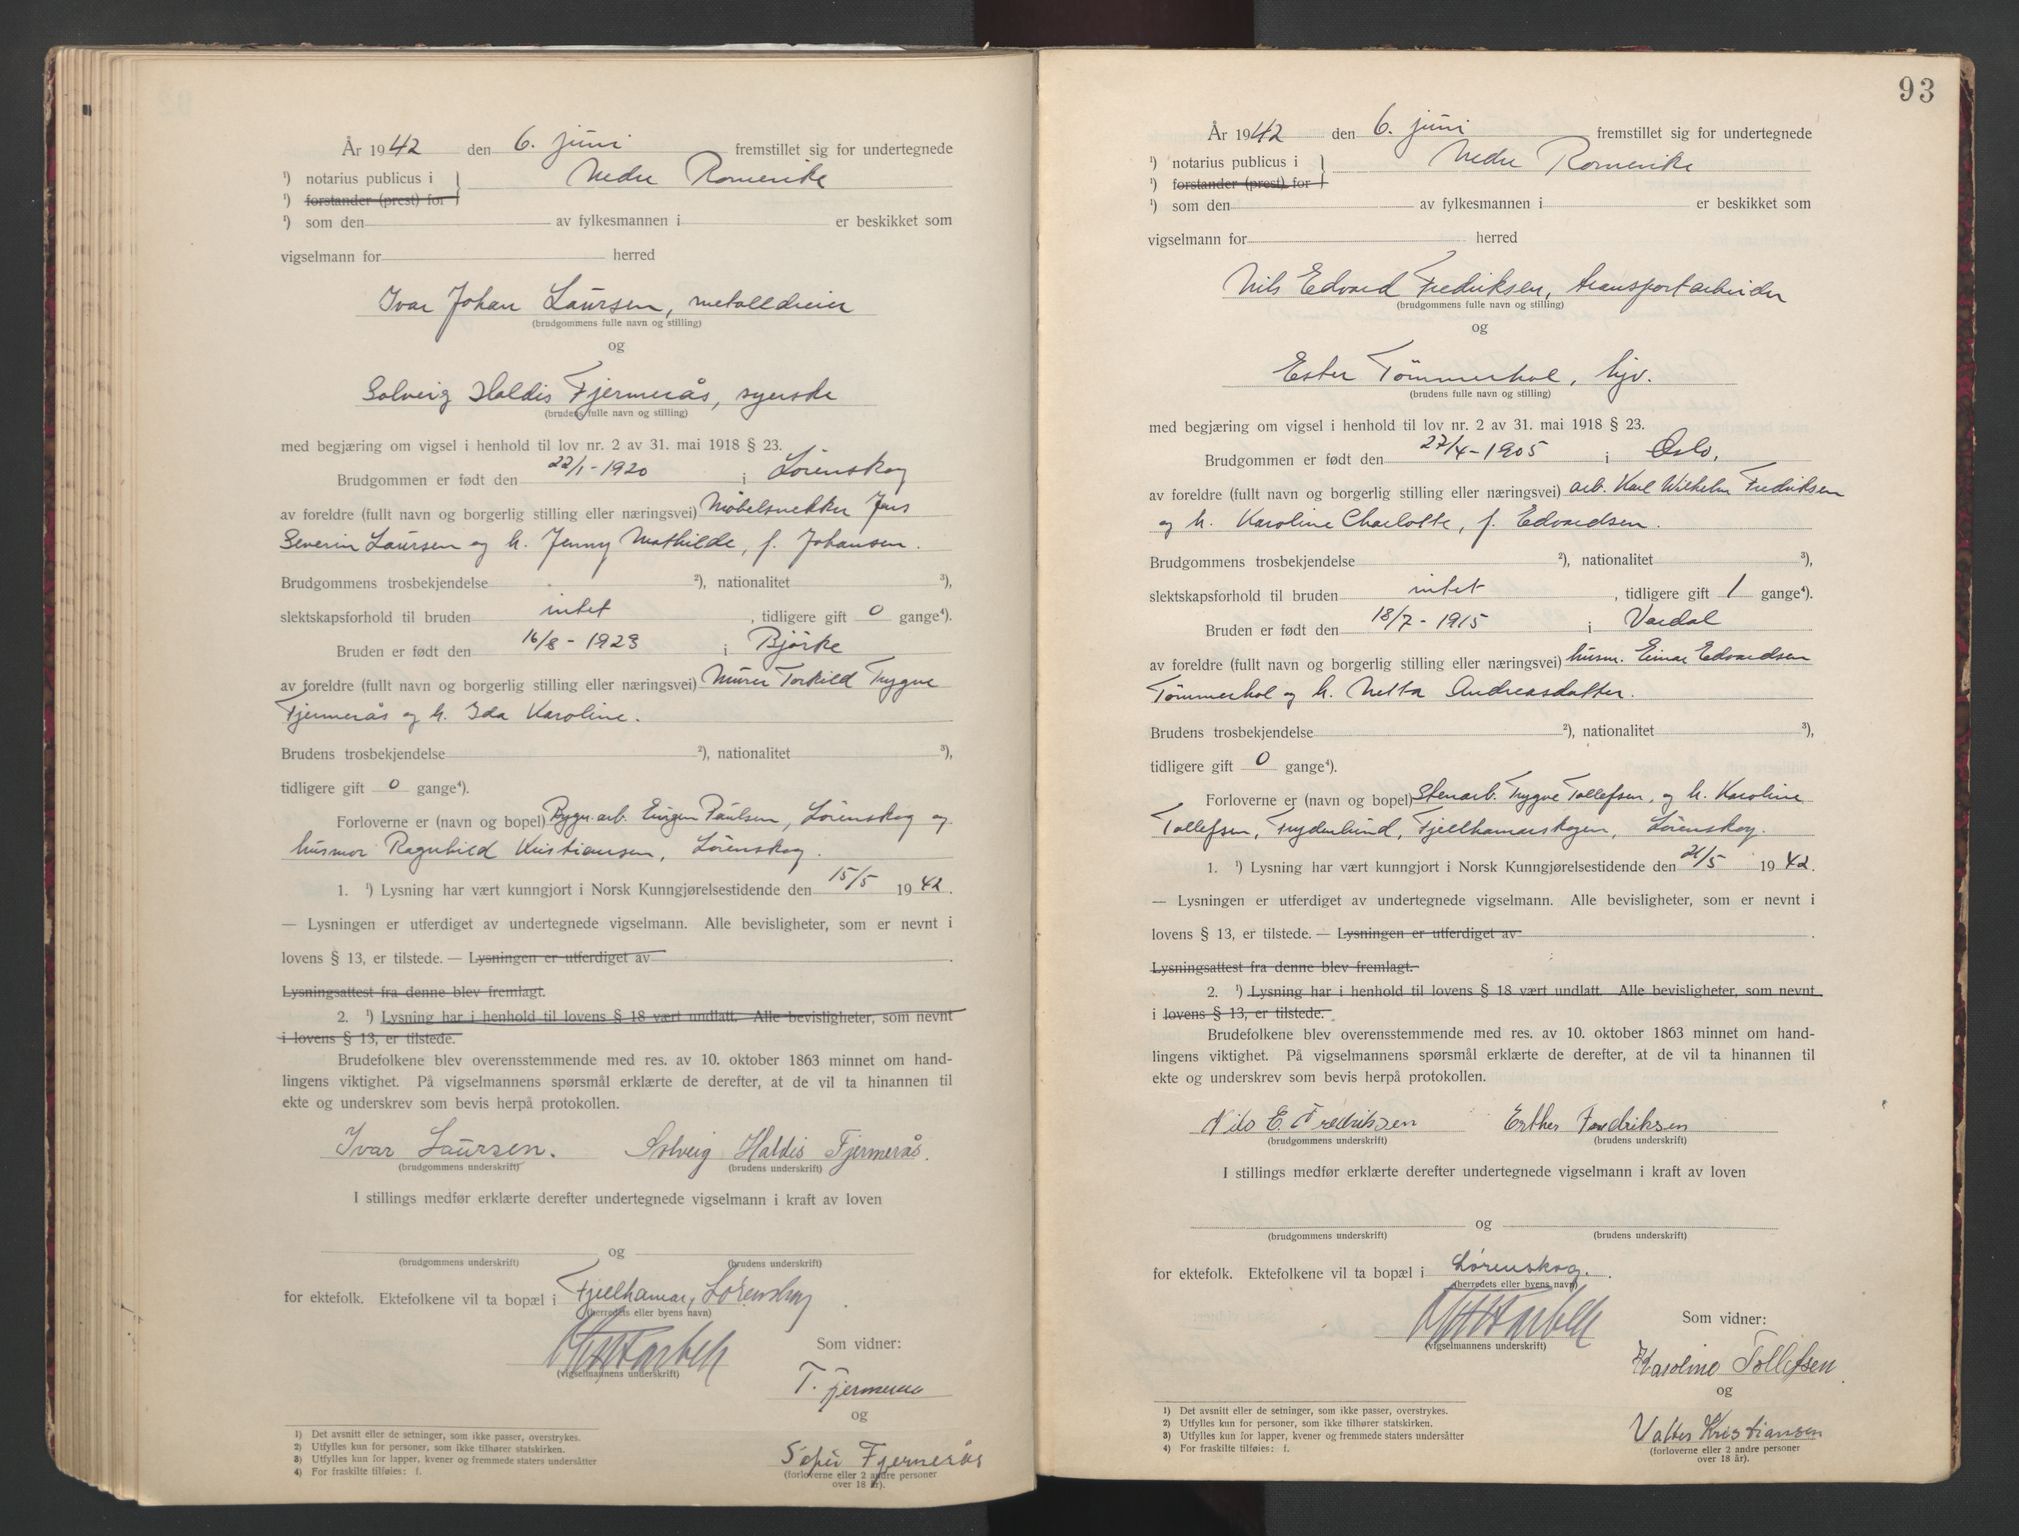 År 1942 den 6. juni fremstillet sig for undertegnede
¹) notarius publicus i } Nedre Romerike
¹) forstander (prest) for }
¹) som den av fylkesmannen i er beskikket som
vigselmann for herred
Ivar Johan Laursen, metalldreier
(brudgommens fulle navn og stilling)
og
Solveig Haldis Fjermerås, syerske
(brudens fulle navn og stilling)
med begjæring om vigsel i henhold til lov nr. 2 av 31. mai 1918 § 23.
Brudgommen er født den 22/1-1920 i Lørenskog
av foreldre (fullt navn og borgerlig stilling eller næringsvei) Møbelsnekker Jens
Severin Laursen og h. Jenny Mathilde, f. Johansen.
Brudgommens trosbekjendelse ²), nationalitet ³),
slektskapsforhold til bruden intet, tidligere gift 0 gange⁴).
Bruden er født den 16/8-1923 i Bjørke
av foreldre (fullt navn og borgerlig stilling eller næringsvei) Murer Torkild Trygve
Fjermerås og h. Ida Karoline.
Brudens trosbekjendelse ²), nationalitet ³),
tidligere gift 0 gange⁴).
Forloverne er (navn og bopel) Bygn.arb. Eugen Paulsen, Lørenskog og
husmor Ragnhild Kristiansen, Lørenskog.
1. ¹) Lysning har vært kunngjort i Norsk Kunngjørelsestidende den 15/5 1942.
— Lysningen er utferdiget av undertegnede vigselmann. Alle bevisligheter, som er nevnt i
lovens § 13, er tilstede. — Lysningen er utferdiget av .
Lysningsattest fra denne blev fremlagt.
2. ¹) Lysning har i henhold til lovens § 18 vært undlatt. Alle bevisligheter, som nevnt
i lovens § 13, er tilstede.
Brudefolkene blev overensstemmende med res. av 10. oktober 1863 minnet om hand-
lingens viktighet. På vigselmannens spørsmål erklærte de derefter, at de vil ta hinannen til
ekte og underskrev som bevis herpå protokollen.
Ivar Laursen. Solveig Haldis Fjermerås.
(brudgommens underskrift) (brudens underskrift)
I stillings medfør erklærte derefter undertegnede vigselmann i kraft av loven
og
(brudgommens underskrift) (brudens underskrift)
for ektefolk. Ektefolkene vil ta bopæl i Fjellhamar, Lørenskog.
(herredets eller byens navn)
Som vidner:
(vigselmannens underskrift)
T. Fjermerås
og
Fjermerås
(forloverne eller 2 andre personer
over 18 år).
1) Det avsnitt eller de setninger, som ikke passer, overstrykes.
2) Utfylles kun for personer, som ikke tilhører statskirken.
3) Utfylles kun for lapper, kvener og fremmede staters undersåtter
4) For fraskilte tilføies: f.
93
År 1942 den 6. juni fremstillet sig for undertegnede
¹) notarius publicus i } Nedre Romerike
¹) forstander (prest) for }
¹) som den av fylkesmannen i er beskikket som
vigselmann for herred
Nils Edvard Fredriksen, transportarbeider
(brudgommens fulle navn og stilling)
og
Ester Tømmerhol, hjv.
(brudens fulle navn og stilling)
med begjæring om vigsel i henhold til lov nr. 2 av 31. mai 1918 § 23.
Brudgommen er født den 27/4-1905 i Oslo,
av foreldre (fullt navn og borgerlig stilling eller næringsvei) arb. Karl Wilhelm Fredriksen
og h. Karoline Charlotte, f. Edvardsen.
Brudgommens trosbekjendelse ²), nationalitet ³),
slektskapsforhold til bruden intet, tidligere gift 1 gange⁴).
Bruden er født den 18/7-1915 i Vardal
av foreldre (fullt navn og borgerlig stilling eller næringsvei) husm. Einar Edvardsen
Tømmerhol og h. Netta Andreasdatter.
Brudens trosbekjendelse ²), nationalitet ³),
tidligere gift 0 gange⁴).
Forloverne er (navn og bopel) Stenarb. Trygve Tollefsen, og h. Karoline
Tollefsen, Frydenlund, Fjellhamarskogen, Lørenskog.
1. ¹) Lysning har vært kunngjort i Norsk Kunngjørelsestidende den 21/5 1942.
— Lysningen er utferdiget av undertegnede vigselmann. Alle bevisligheter, som er nevnt i
lovens § 13, er tilstede. — Lysningen er utferdiget av .
Lysningsattest fra denne blev fremlagt.
2. ¹) Lysning har i henhold til lovens § 18 vært undlatt. Alle bevisligheter, som nevnt
i lovens § 13, er tilstede.
Brudefolkene blev overensstemmende med res. av 10. oktober 1863 minnet om hand-
lingens viktighet. På vigselmannens spørsmål erklærte de derefter, at de vil ta hinannen til
ekte og underskrev som bevis herpå protokollen.
Nils E. Fredriksen Esther Fredriksen
(brudgommens underskrift) (brudens underskrift)
I stillings medfør erklærte derefter undertegnede vigselmann i kraft av loven
og
(brudgommens underskrift) (brudens underskrift)
for ektefolk. Ektefolkene vil ta bopæl i Lørenskog.
(herredets eller byens navn)
Som vidner:
(vigselmannens underskrift)
Karoline Tollefsen
og
Valter Kristiansen
(forloverne eller 2 andre personer
over 18 år).
1) Det avsnitt eller de setninger, som ikke passer, overstrykes.
2) Utfylles kun for personer, som ikke tilhører statskirken.
3) Utfylles kun for lapper, kvener og fremmede staters undersåtter
4) For fraskilte tilføies: f.